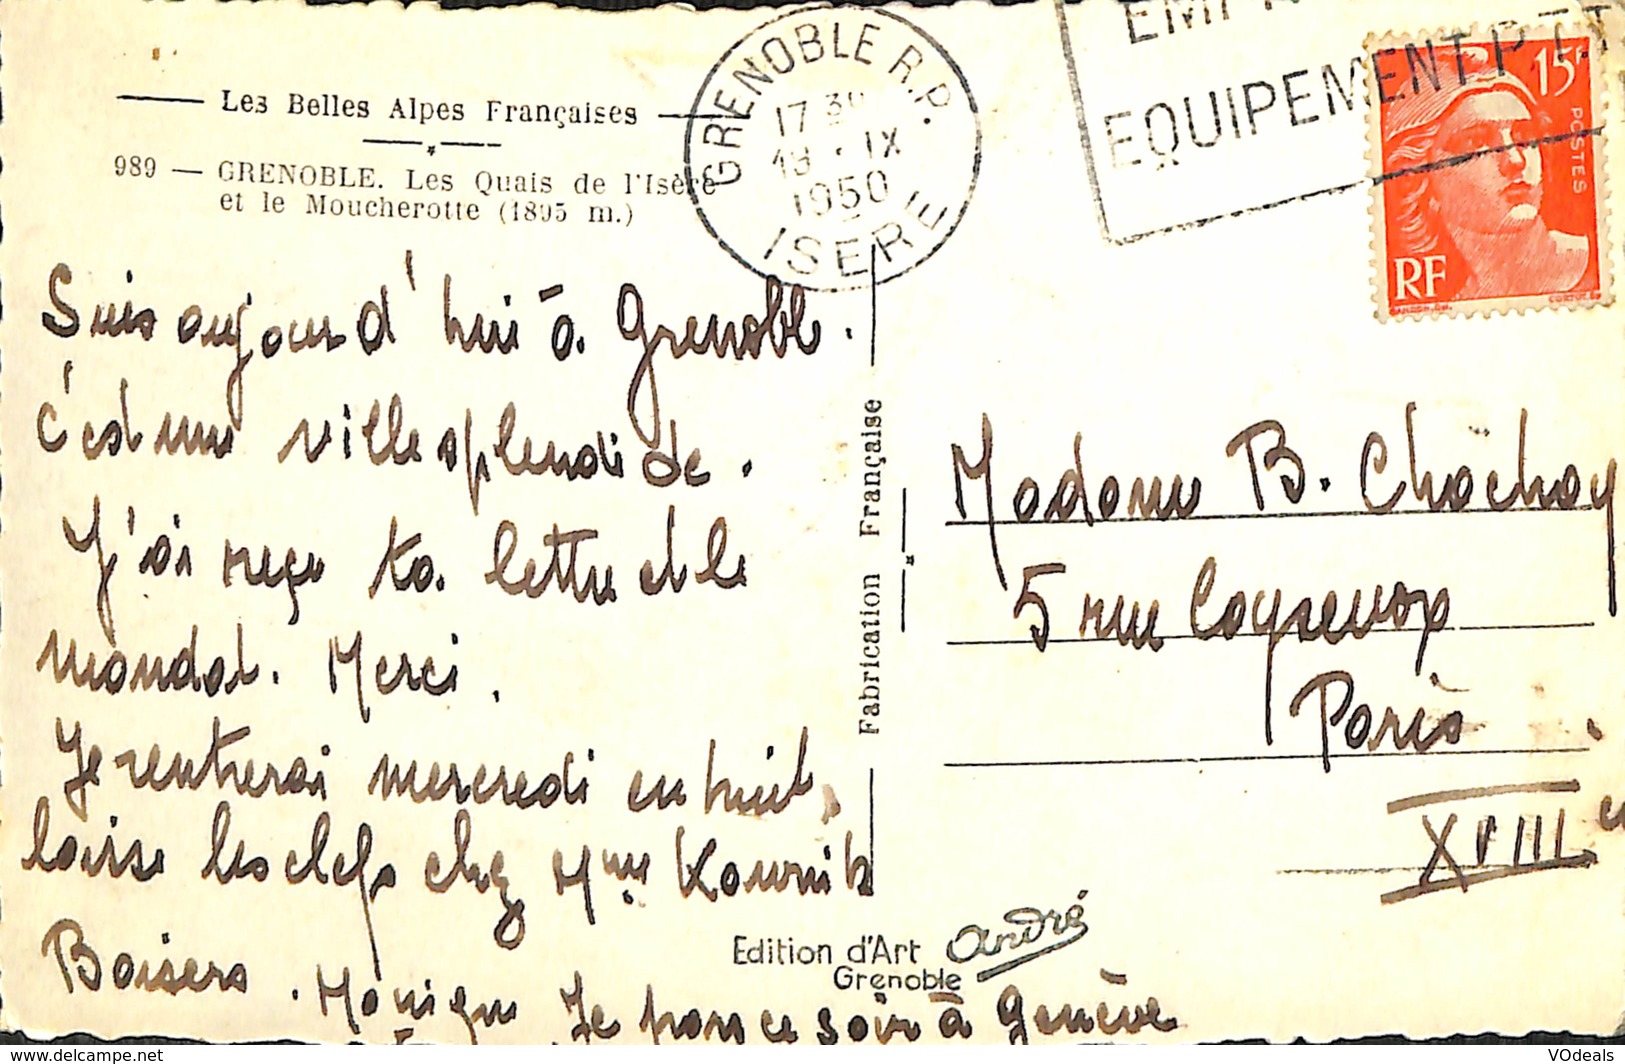 Les Belles Alpes Françaises
989 — GRENOBLE. Les Quais de l'Isère
et le Moucherotte (1895 m.)
GRENOBLE R.P.
17 30
18 · IX
1950
ISERE
EQUIPEMENT P.T.T
15F
POSTES
RF
GANDON, DEL.
CORTOT, SC
Suis aujourd'hui à Grenoble.
C'est une ville splendide.
J'ai reçu ta lettre et le
mandat. Merci.
Je rentrerai mercredi en huit,
laisse les clefs chez Mme
Baisers. Monique Je pars ce soir à Genève
Fabrication Française
Madame B. Chochoy
5 rue Coysevox
Paris
XVIIIe
Edition d'Art André
Grenoble
http://www.delcampe.net
VOdeals